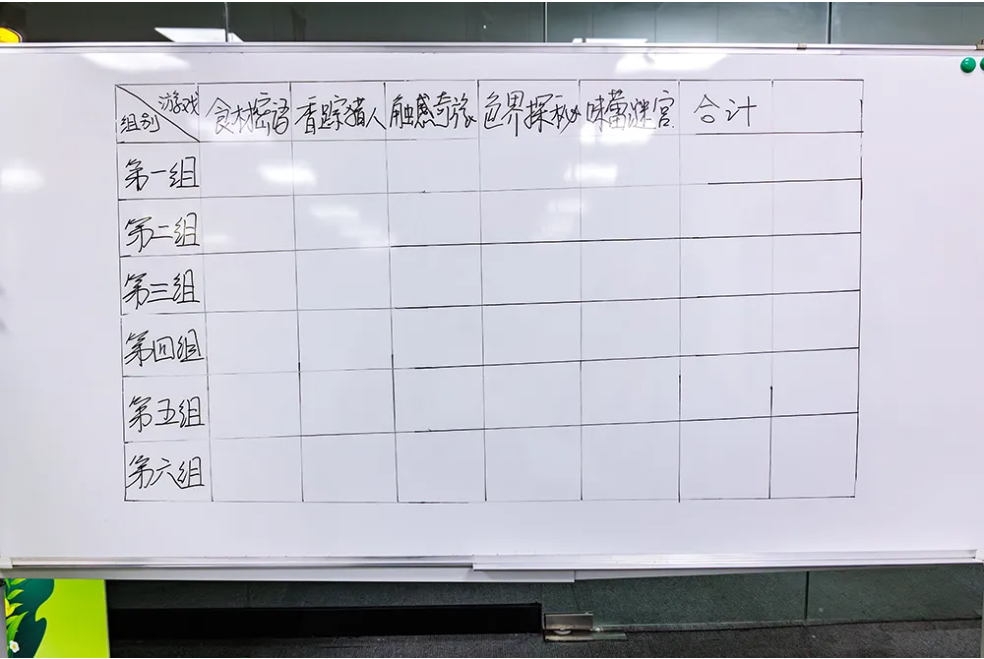 游戏
组别 食材密语 香踪猎人 触感奇旅 色界探秘 味蕾迷宫 合计
第一组
第二组
第三组
第四组
第五组
第六组